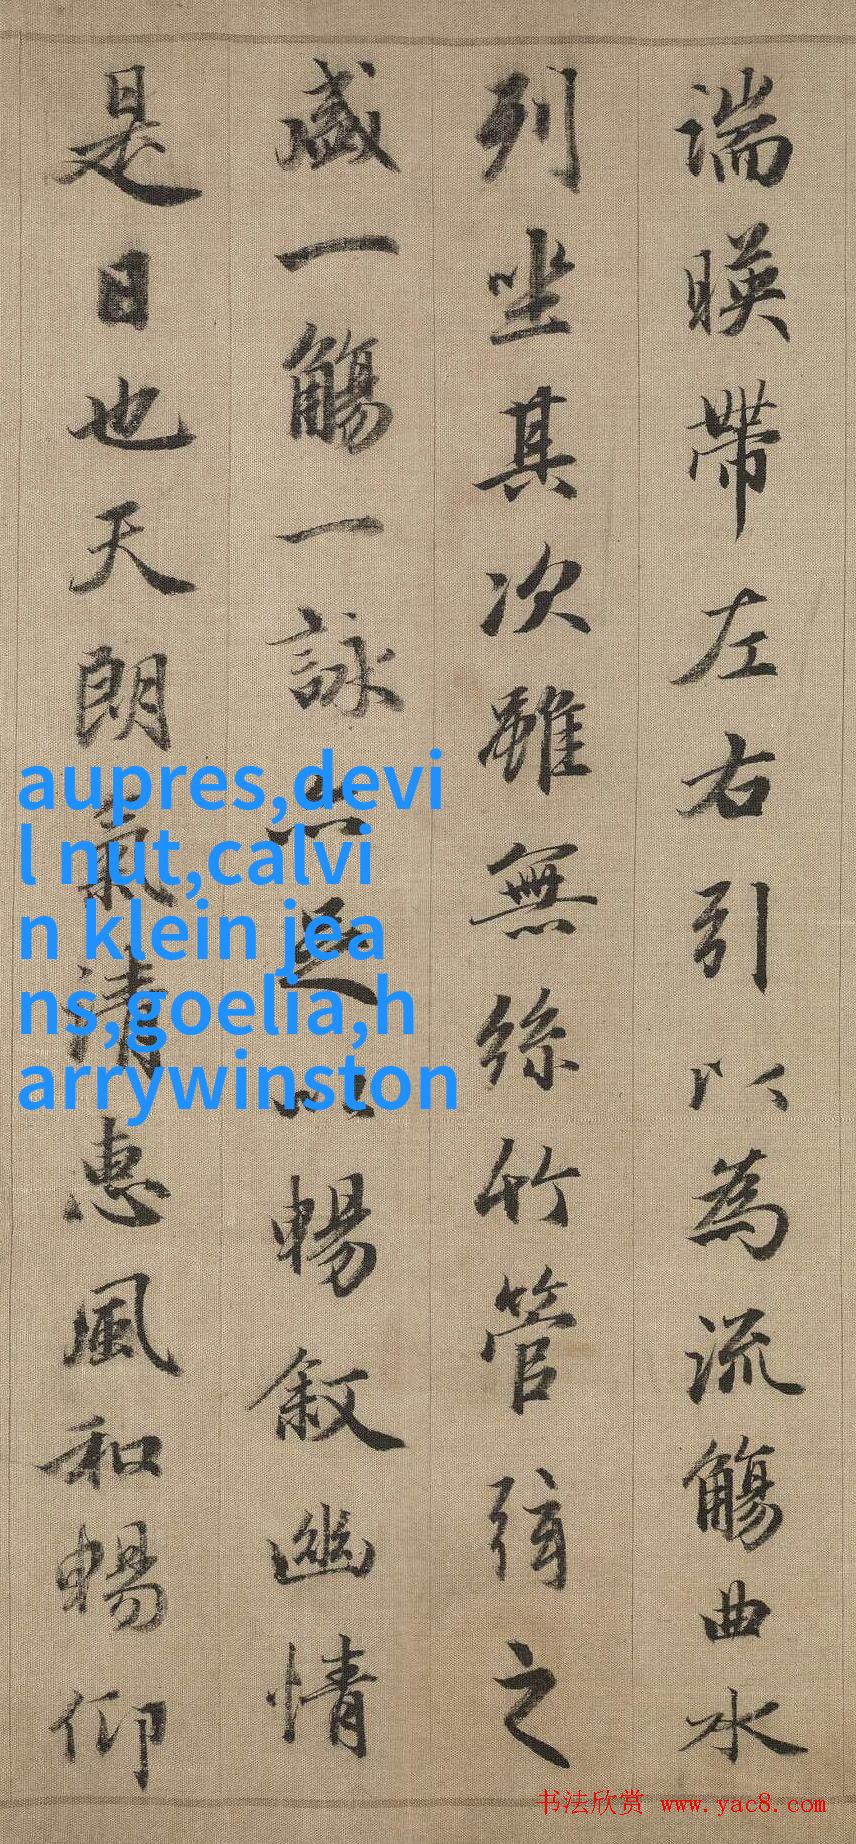 湍暎帶左右引以為流觴曲水
列坐其次雖無絲竹管弦之
盛一觴一詠亦足以暢敘幽情
是日也天朗氣清惠風和暢仰
aupres,devi
l nut,calvi
n klein jea
ns,goelia,h
arrywinston
书法欣赏 www.yac8.com